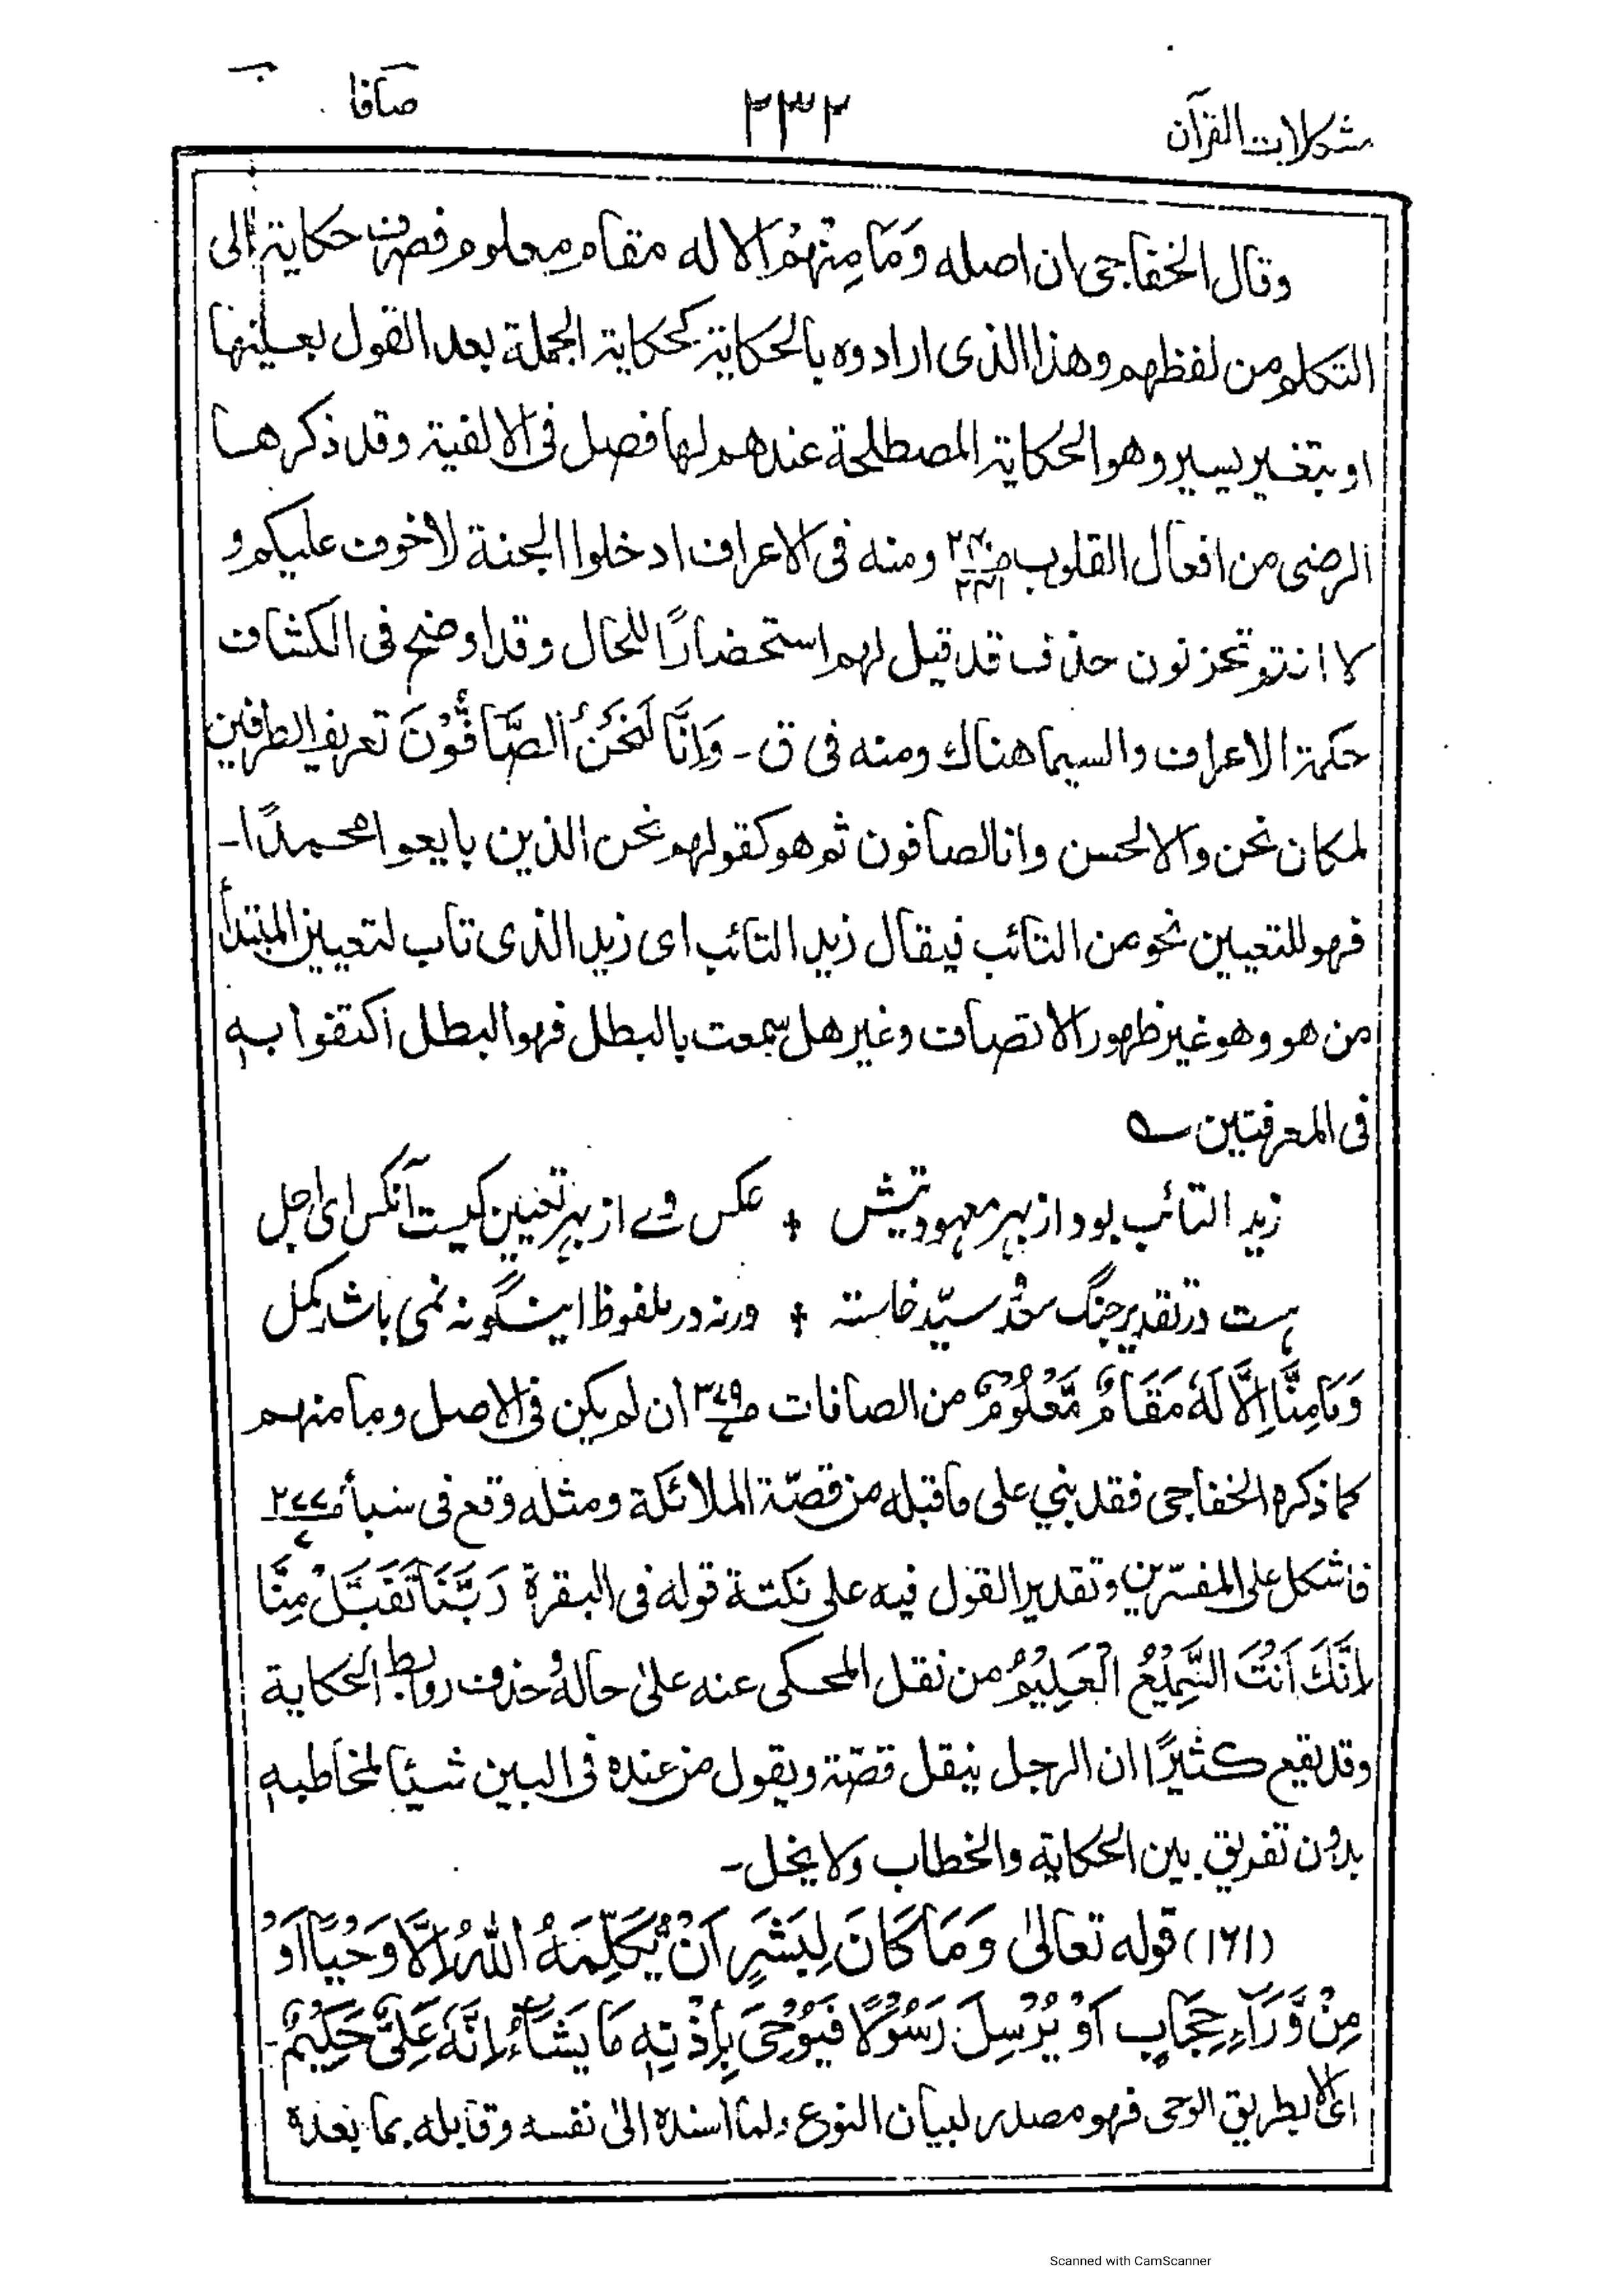 مشكلات القرآن ٢٣٢ صافا
وقال الخفاجى ان اصله وَمَا مِنْهُمْ الا له مقام معلوم فصرف حكاية الى
التكلم من لفظهم وهذا الذى ارادوه بالحكاية كحكاية الجملة بعد القول بعينها
او بتغير يسير وهو الحكاية المصطلحة عندهم لها فصل فى الالفية وقد ذكرها
الرضى من افعال القلوب ومنه فى الاعراف ادخلوا الجنة لا خوف عليكم و
لا انتم تحزنون حذف قد قيل لهم استحضارًا للحال وقد اوضح فى الكشاف
حكمة الاعراف والسيما هناك ومنه فى ق ـ وَاِنَّا لَنَحْنُ الصَّآفُّوْنَ تعريف الطرفين
لمكان نحن والا لحسن وانا لصافون ثم هو كقولهم نحن الذين بايعوا محمدًا ـ
فهو للتعيين نحو من التائب فيقال زيد التائب اى زيد الذى تاب لتعيين المبتدأ
من هو وهو غير ظهور الاتصاف وغير هل سمعت بالبطل فهو البطل اكتفوا به
فى المعرفتين ؎
زید التائب بود از بہر معہودیتش + عکس وے از بہر تعیین کیست آنکس ای اجل
ہست در تقدیر جنگ سعد سید خاستہ + ورنہ در ملفوظ اینگونہ نمی باشد کمل
وَمَا مِنَّا اِلَّا لَهٗ مَقَامٌ مَّعْلُوْمٌ من الصافات ان لم يكن فى الاصل وما منهم
كما ذكره الخفاجى فقد بني على ما قبله من قصّة الملائكة ومثله وقع فى سبأ
فاشكل على المفسّرين وتقدير القول فيه على نكتة قوله فى البقرة رَبَّنَا تَقَبَّلْ مِنَّا
اِنَّكَ اَنْتَ السَّمِيْعُ الْعَلِيْمُ من نقل المحكى عنه على حاله وحذف روابط الحكاية
وقد يقع كثيرًا ان الرجل ينقل قصّة ويقول من عنده فى البين شيئا لمخاطبه
بدون تفريق بين الحكاية والخطاب ولا يخل ـ
(١٦١) قوله تعالىٰ وَمَا كَانَ لِبَشَرٍ اَنْ يُّكَلِّمَهُ اللّٰهُ اِلَّا وَحْيًا اَوْ
مِنْ وَّرَآءِ حِجَابٍ اَوْ يُرْسِلَ رَسُوْلًا فَيُوْحِىَ بِاِذْنِهٖ مَا يَشَآءُ اِنَّهٗ عَلِىٌّ حَكِيْمٌ ـ
اى الا بطريق الوحى فهو مصدر لبيان النوع ولما اسنده الىٰ نفسه وقابله بما بعده
Scanned with CamScanner